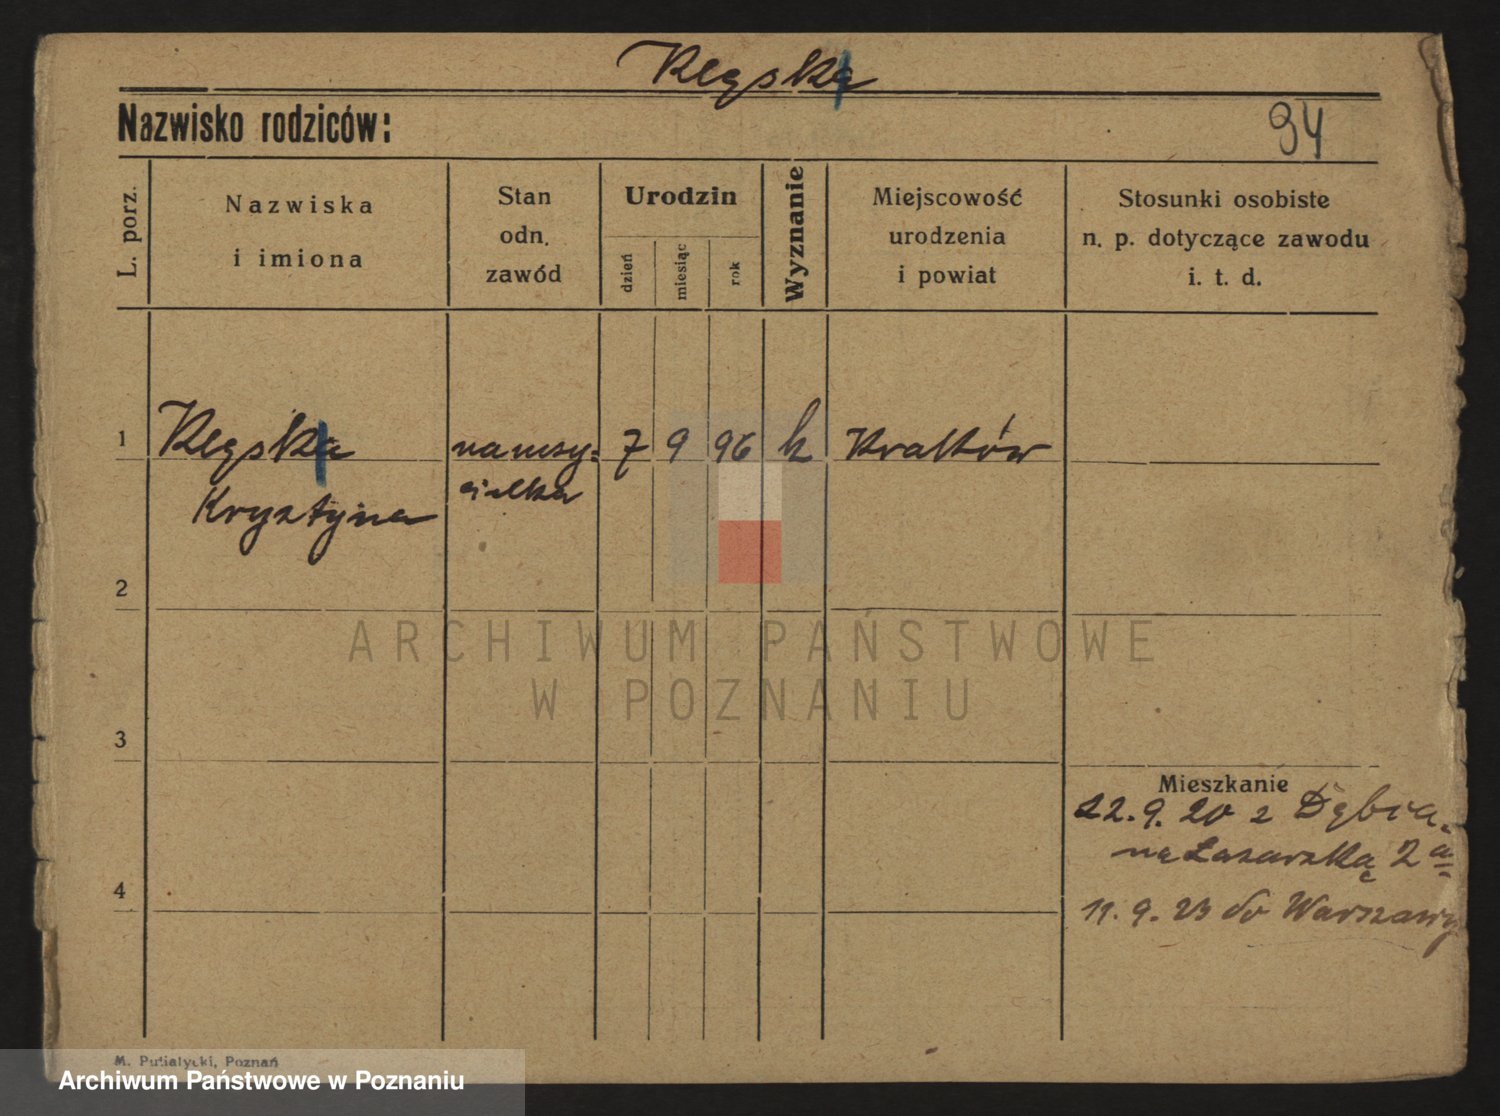 Klęska
Nazwisko rodziców:
94
L. porz.
Nazwiska
i imiona
Stan
odn.
zawód
Urodzin
dzień
miesiąc
rok
Wyznanie
Miejscowość
urodzenia
i powiat
Stosunki osobiste
n. p. dotyczące zawodu
i. t. d.
1
Klęska nauczy= 7 9 96 k Kraków
Krystyna cielka
2
3
4
Mieszkanie
22.9.20 z Dębca
na Łazarską 2a
11.9.23 do Warszawy
M. Putiatycki, Poznań
ARCHIWUM PAŃSTWOWE
W POZNANIU
Archiwum Państwowe w Poznaniu